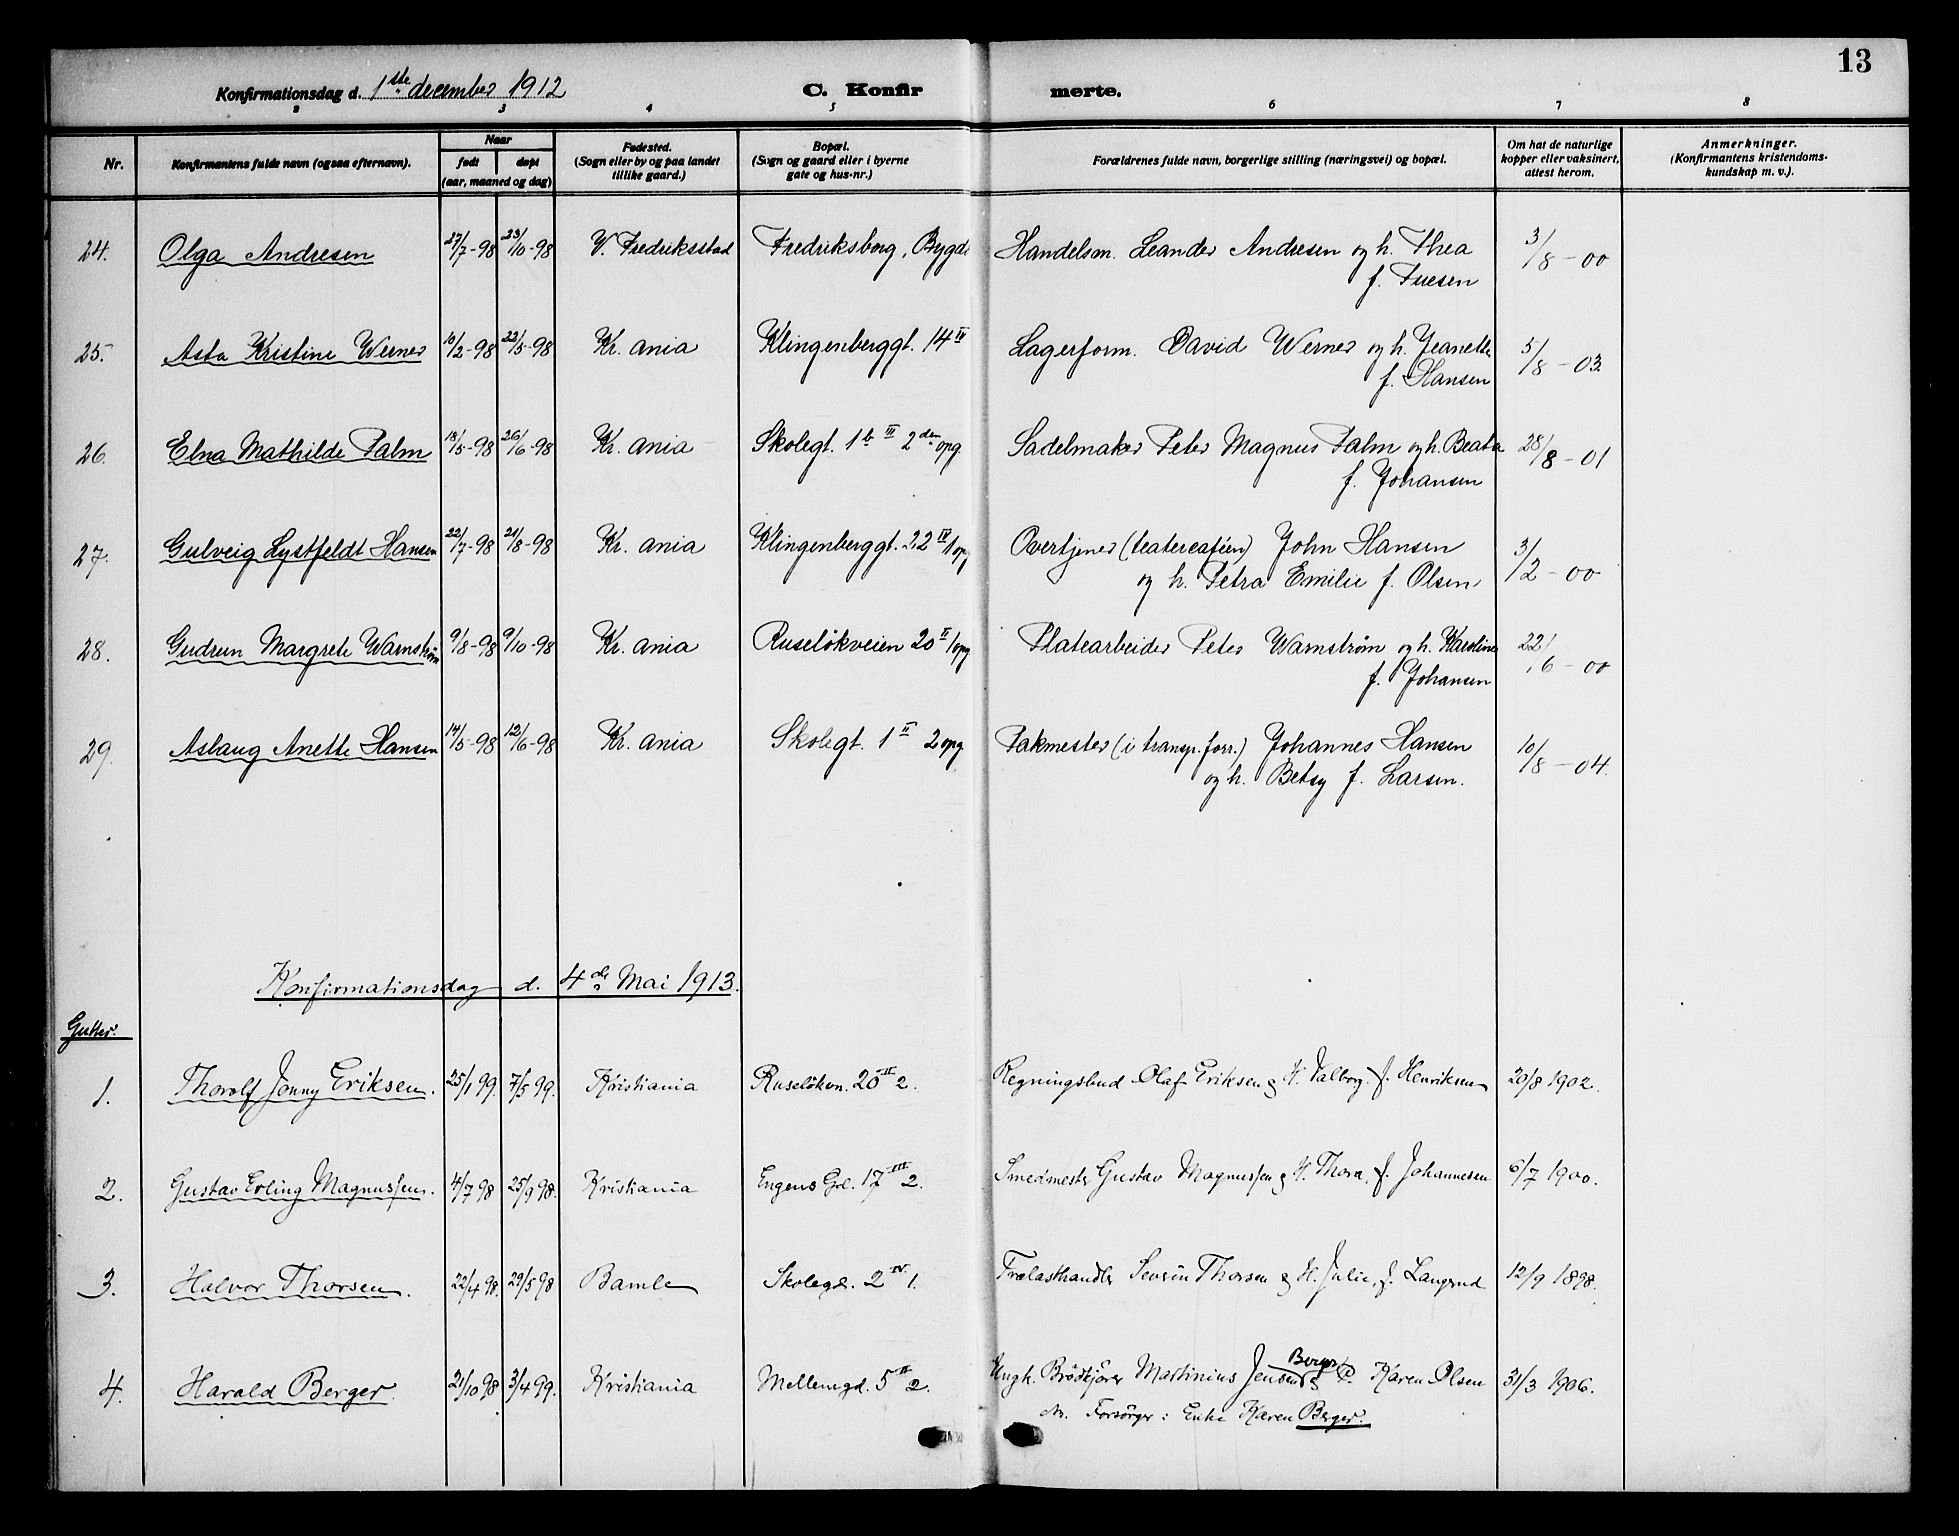 13
Konfirmationsdag d. 1ste december 1912 C. Konfirmerte.
2 3 4 5 6 7 8
Nr.
Konfirmantens fulde navn (ogsaa efternavn).
Naar
født døpt
(aar, maaned og dag)
Fødested.
(Sogn eller by og paa landet
tillike gaard.)
Bopæl.
(Sogn og gaard eller i byerne
gate og hus-nr.)
Forældrenes fulde navn, borgerlige stilling (næringsvei) og bopæl.
Om hat de naturlige
kopper eller vaksinert,
attest herom.
Anmerkninger.
(Konfirmantens kristendoms-
kundskap m. v.).
24. Olga Andresen 27/7-98 23/10-98 V. Fredriksstad Fredriksborg, Bygdø Handelsm. Leander Andresen og h. Thea 3/8-00
f. Tuesen
25. Asta Kristine Werner 10/2-98 22/5-98 Kr. ania Klingenberggt. 14 IV Lagerform. David Werner og h. Jeanette 5/8-03.
f. Hansen
26. Elna Mathilde Palm 18/5-98 26/6-98 Kr. ania Skolegt. 1b III 2den opg. Sadelmaker Peter Magnus Palm og h. Beata 28/8-01
f. Johansen
27. Gulveig Lystfeldt Hansen 22/7-98 21/8-98 Kr. ania Klingenberggt. 22 IV 1 opg Overtjener (teatercaféen) John Hansen 3/2-00
og h. Petra Emilie f. Olsen
28. Gudrun Margrete Warnstrøm 9/8-98 9/10-98 Kr. ania Ruseløkveien 20 II 1 opg Platearbeider Peter Warnstrøm og h. Karoline 22/6-00
f. Johansen
29. Aslaug Anette Hansen 14/5-98 12/6-98 Kr. ania Skolegt. 1 II 2 opg Pakmester (i transp. forr.) Johannes Hansen 10/8-04.
og h. Betsy f. Larsen.
Konfirmationsdag d. 4de Mai 1913.
Gutter.
1. Thorolf Jonny Eriksen. 25/1 99. 7/5 99. Kristiania Ruseløkvn. 20 III 2. Regningsbud Olaf Eriksen & H. Valborg f. Henriksen 20/8 1902.
2. Gustav Erling Magnussen. 4/7 98 25/9 98. Kristiania Engens Gd. 17 III 2. Smedmester Gustav Magnussen & H. Thora, f. Johannesen 6/7 1900.
3. Halvor Thorsen. 22/4 98. 29/5 98 Bamle Skolegd. 2 IV. 1. Trælasthandler Severin Thorsen & H. Julie, f. Langrud 12/9 1898.
4. Harald Berger. 21/10 98. 3/4 99. Kristiania Mellemgd. 5 II 2. Ungk. Brödkjörer Martinius Jensen Berger & P. Karen Olsen 31/3 1906.
Forsörger: Enke Karen Berger.